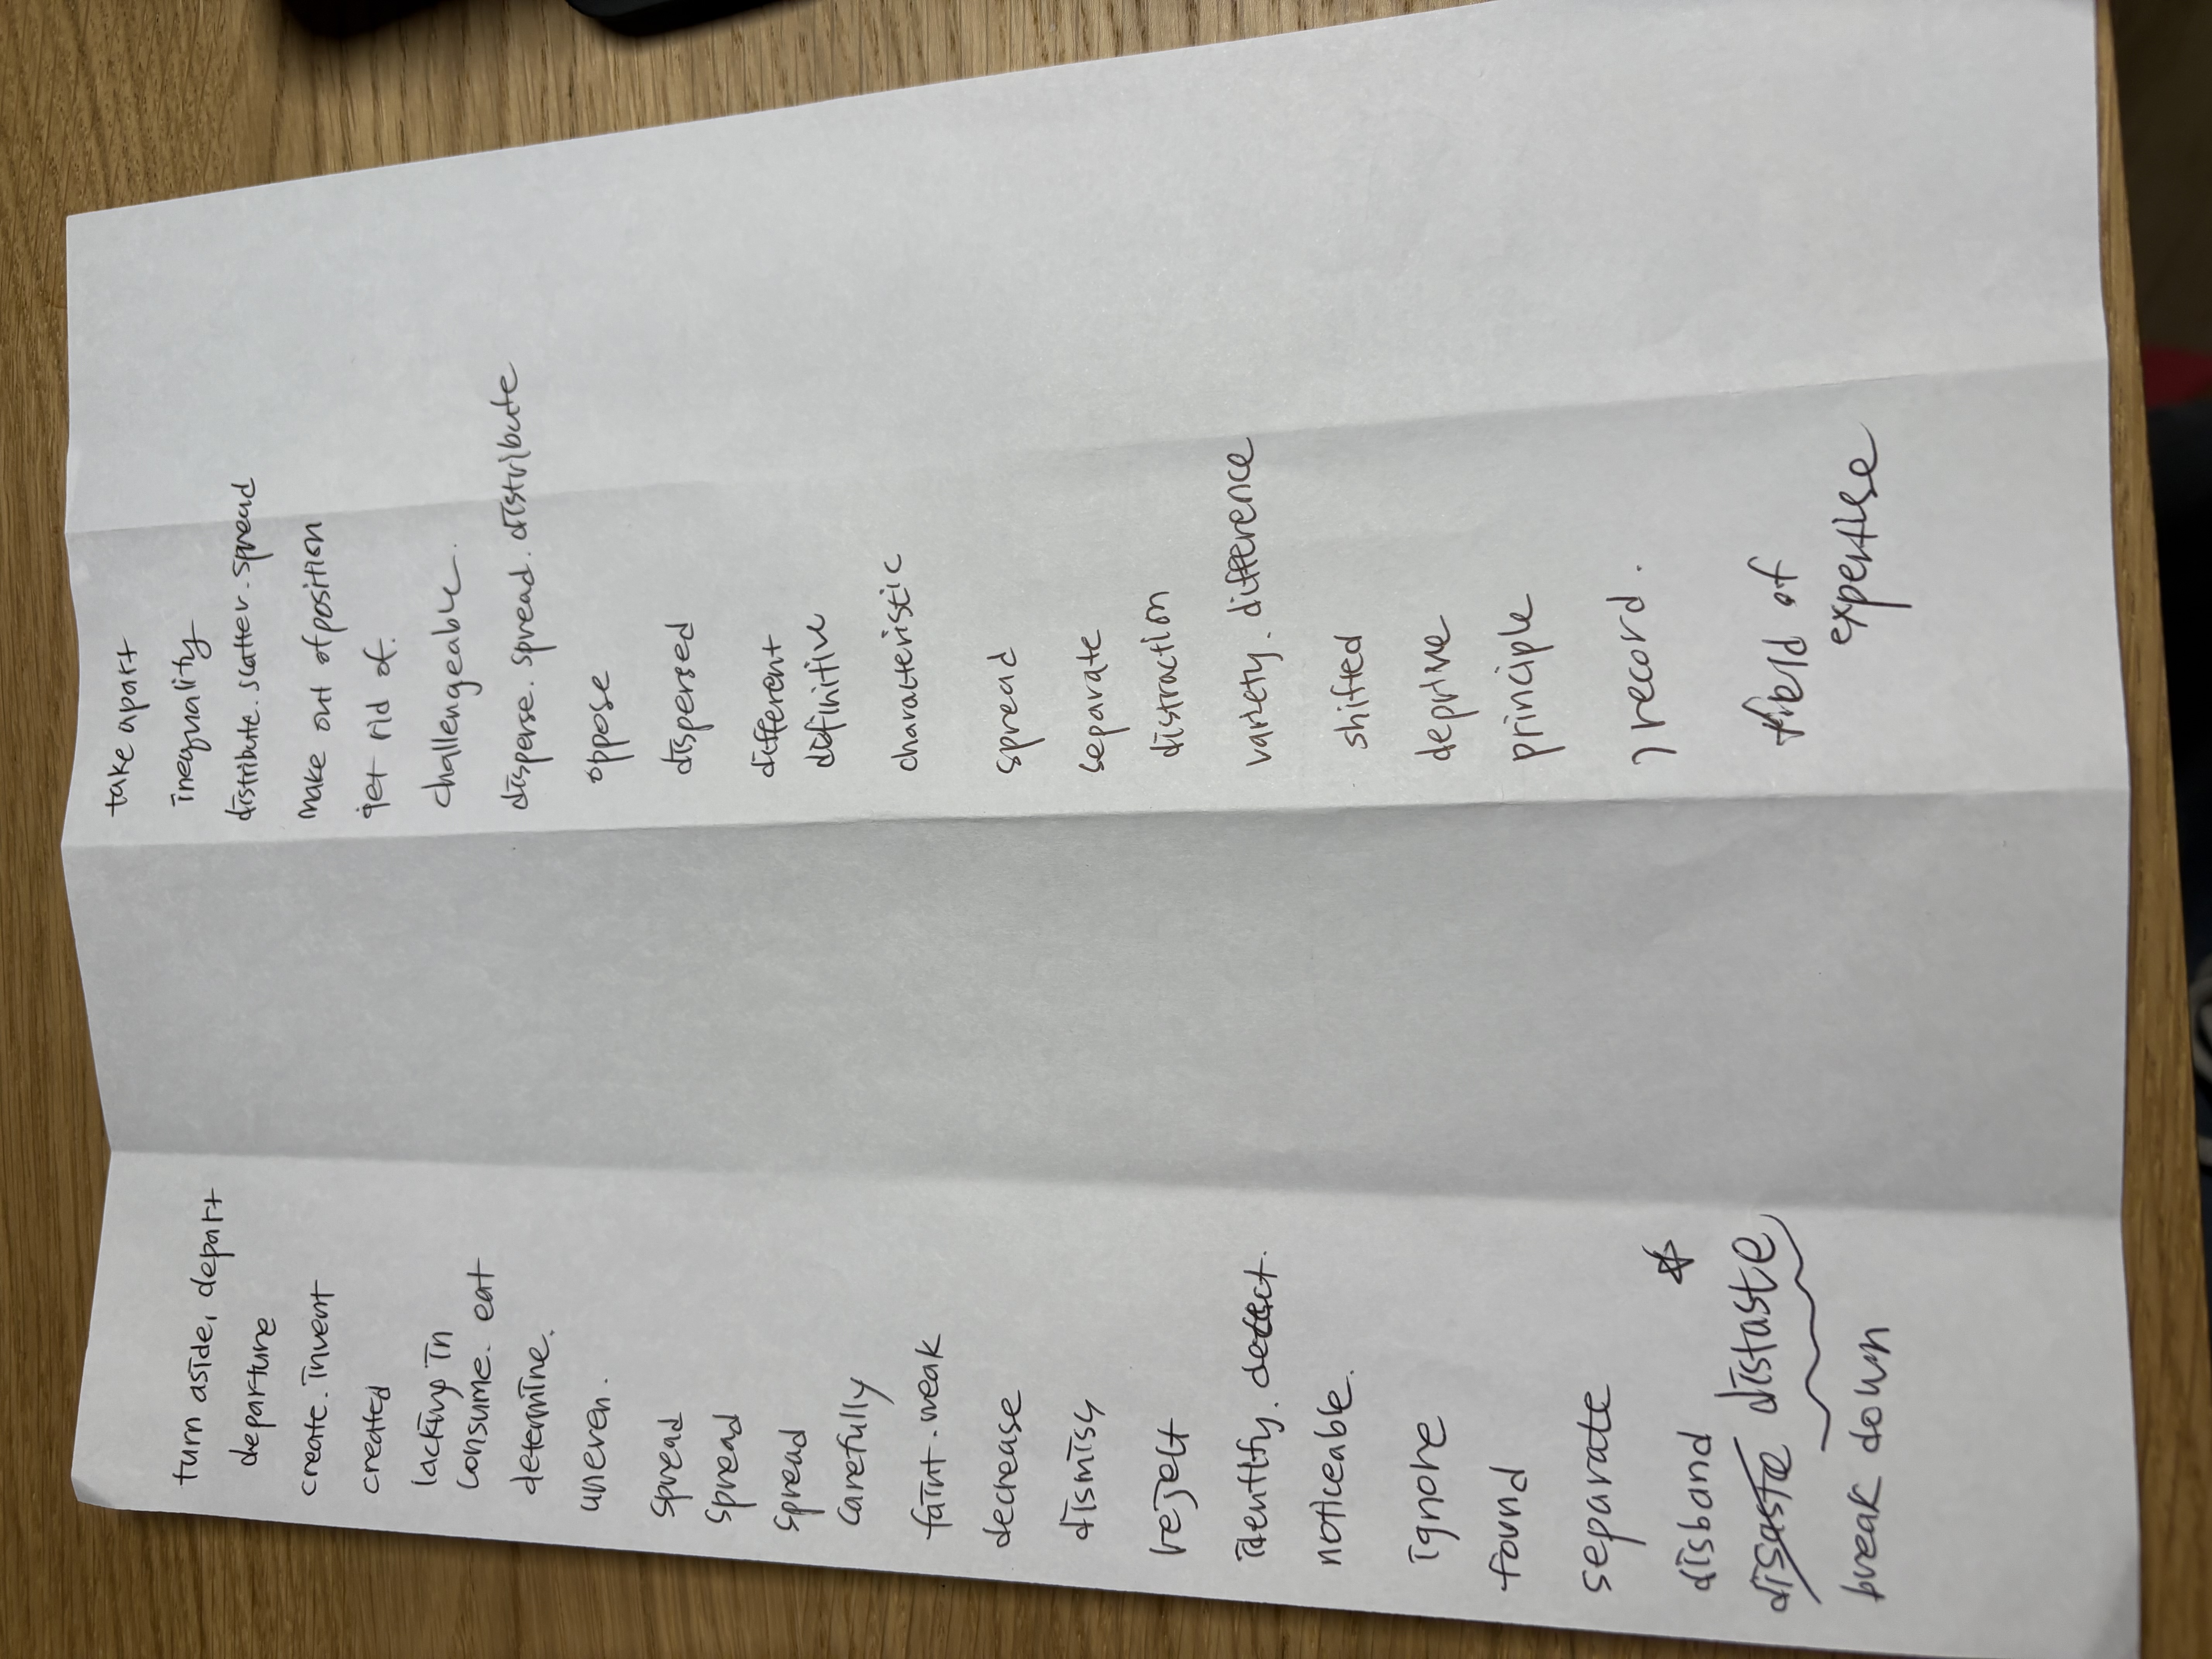 turn aside, depart
departure
create. invent
created
lacking in
consume. eat
determine.
uneven.
spread
spread
spread
carefully
faint. weak
decrease
dismiss
reject
identify. detect.
noticeable.
ignore
found
separate
disband
disaste distaste
break down
take apart
inequality
distribute. scatter. spread
make out of position
get rid of.
challengeable.
disperse. spread. distribute
oppose
dispersed
different
definitive
characteristic
spread
separate
distraction
variety. difference
shifted
deprive
principle
record.
field of
expertise